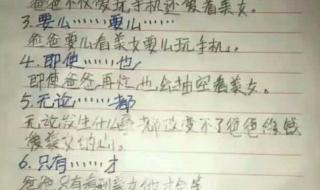 爸爸不仅爱玩手机还爱看美女。
3.要么……要么……
爸爸要么看美女要么玩手机。
4.即使……也
即使爸爸再忙也会抽空看美女。
5.无论……都
无论发生什么都改变不了爸爸
爱美女的心。
6.只有……才
爸爸只有看到美女他才会笑